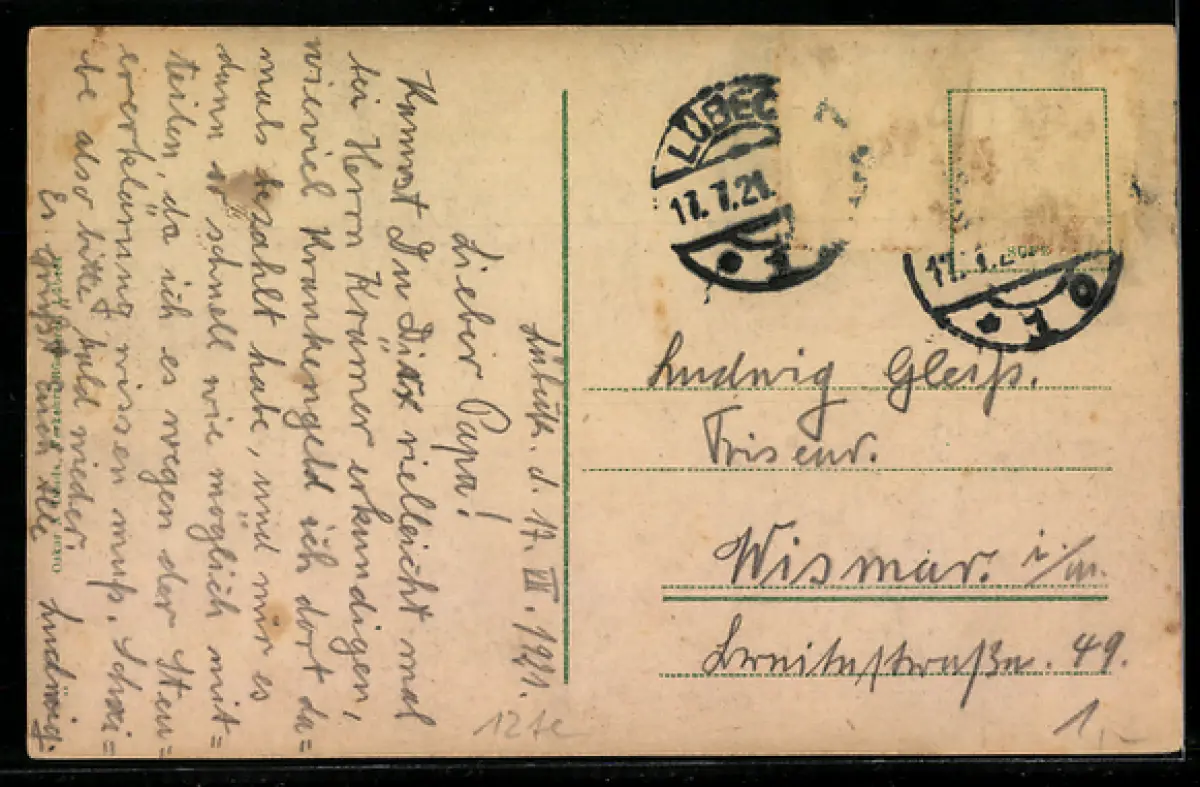 Lübeck. d. 17. VII. 1921.
Lieber Papa!
Kannst Du Dich vielleicht mal
bei Herrn Kramer erkundigen,
wieviel Krankengeld ich dort da=
mals bezahlt habe, und mir es
dann so schnell wie möglich mit=
teilen, da ich es wegen der Steu=
ererklärung wissen muß. Schrei=
be also bitte bald wieder.
Es grüßt auch alle Ludwig.
LÜBEC
17.7.21.
1
17.7.2
1
Ludwig Gleiß.
Friseur.
Wismar. i/M.
Breitestraße. 49.
12te
1,-